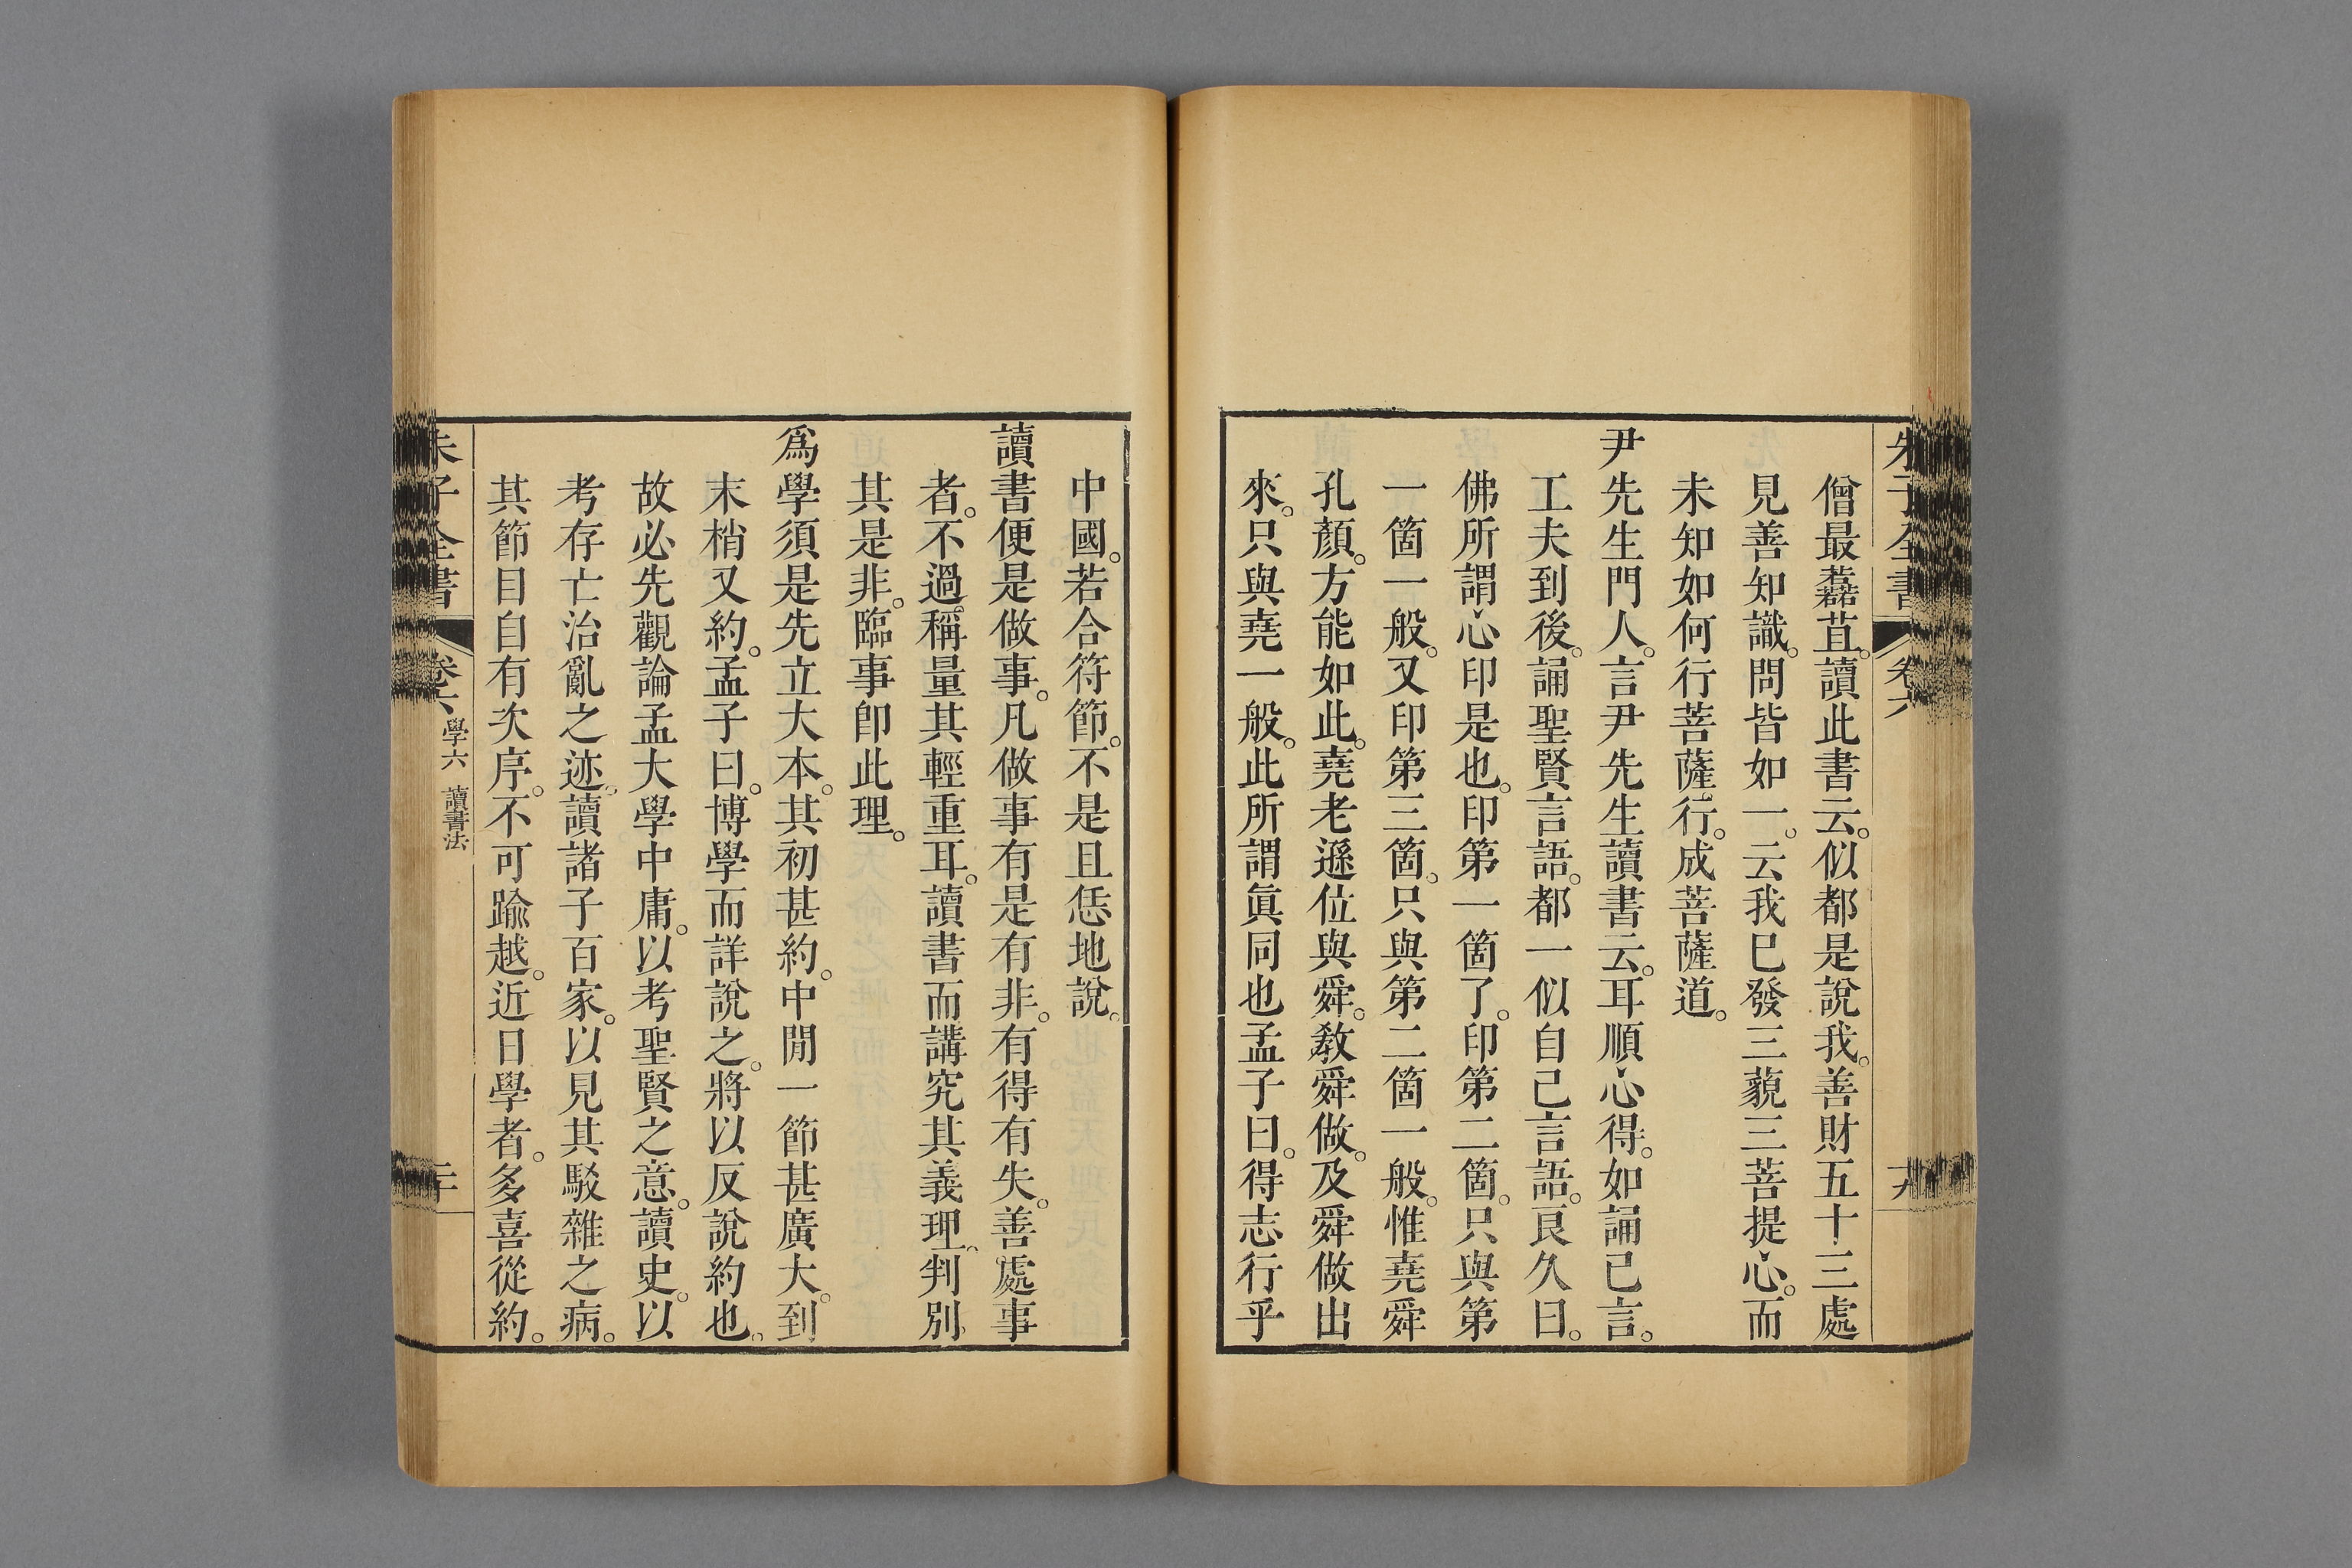 朱子全書 卷六 十九
僧最蠚苴。讀此書云。似都是說我。善財五十三處
見善知識。問皆如一。云我已發三藐三菩提心。而
未知如何行菩薩行。成菩薩道。
尹先生門人。言尹先生讀書云。耳順心得。如誦己言。
工夫到後。誦聖賢言語。都一似自己言語。良久曰。
佛所謂心印是也。印第一箇了。印第二箇。只與第
一箇一般。又印第三箇。只與第二箇一般。惟堯舜
孔顏。方能如此。堯老遜位與舜。敎舜做。及舜做出
來。只與堯一般。此所謂眞同也孟子曰。得志行乎
中國。若合符節。不是且恁地說。
讀書便是做事。凡做事有是有非。有得有失。善處事
者。不過稱量其輕重耳。讀書而講究其義理。判別
其是非。臨事卽此理。
爲學須是先立大本。其初甚約。中閒一節甚廣大。到
末梢又約。孟子曰。博學而詳說之。將以反說約也。
故必先觀論孟大學中庸。以考聖賢之意。讀史。以
考存亡治亂之迹。讀諸子百家。以見其駁雜之病。
其節目自有次序。不可踰越。近日學者。多喜從約。
朱子全書 卷六 學六 讀書法 二十